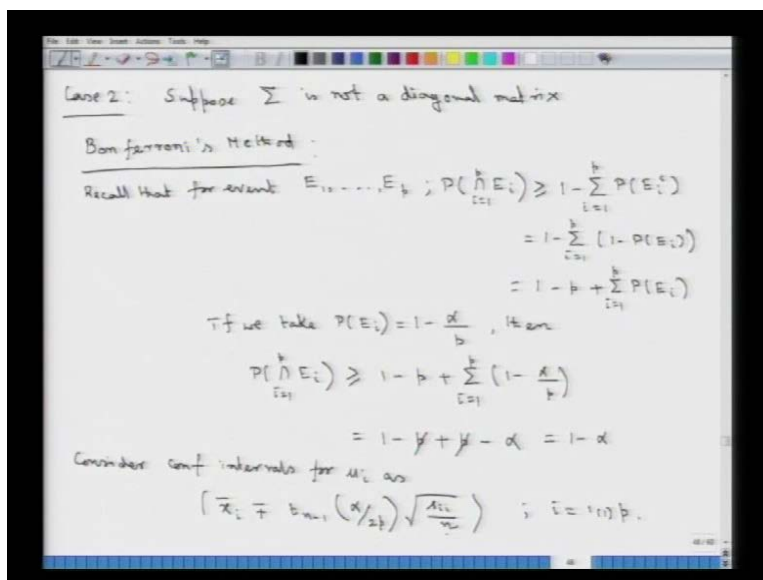 File Edit View Insert Actions Tools Help
Case 2: Suppose Σ is not a diagonal matrix
Bonferroni's Method:
Recall that for event E₁, ..., Eₚ ; P(⋂ᵢ₌₁ᵖ Eᵢ) ≥ 1 - Σᵢ₌₁ᵖ P(Eᵢᶜ)
= 1 - Σᵢ₌₁ᵖ (1 - P(Eᵢ))
= 1 - p + Σᵢ₌₁ᵖ P(Eᵢ)
If we take P(Eᵢ) = 1 - α/p , then
P(⋂ᵢ₌₁ᵖ Eᵢ) ≥ 1 - p + Σᵢ₌₁ᵖ (1 - α/p)
= 1 - p + p - α = 1 - α
Consider conf intervals for μᵢ as
(x̄ᵢ ∓ tₙ₋₁ (α/2p) √(sᵢᵢ/n)) ; i = 1(1)p.